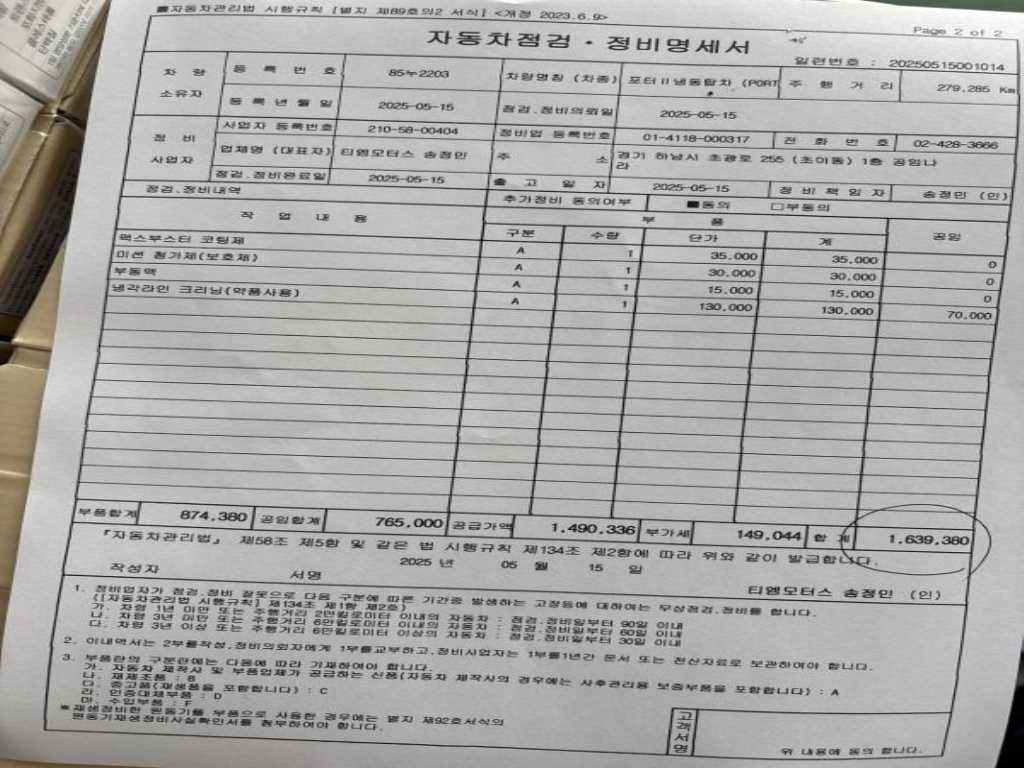 ■자동차관리법 시행규칙 [별지 제89호의2 서식] <개정 2023.6.9>
Page 2 of 2
자동차점검 · 정비명세서
일련번호 : 20250515001014
차 량 소유자 등 록 번 호 85누2203 차량명칭 (차종) 포터Ⅱ냉동탑차 (PORT 주 행 거 리 279,285 Km
등 록 년 월 일 2025-05-15 점검.정비의뢰일 2025-05-15
정 비 사업자 사업자 등록번호 210-58-00404 정비업 등록번호 01-4118-000317 전 화 번 호 02-428-3666
업체명 (대표자) 티엠모터스 송정민 주 소 경기 하남시 초광로 255 (초이동) 1층 공임나라
점검.정비완료일 2025-05-15 출 고 일 자 2025-05-15 정 비 책 임 자 송정민 (인)
점검.정비내역 추가정비 동의여부 ■동의 □부동의
작 업 내 용 부 품 공임
구분 수량 단가 계
맥스부스터 코팅제 A 1 35,000 35,000 0
미션 첨가제(보호제) A 1 30,000 30,000 0
부동액 A 1 15,000 15,000 0
냉각라인 크리닝(약품사용) A 1 130,000 130,000 70,000
부품합계 874,380 공임합계 765,000 공급가액 1,490,336 부가세 149,044 합 계 1,639,380
『자동차관리법』 제58조 제5항 및 같은 법 시행규칙 제134조 제2항에 따라 위와 같이 발급합니다.
2025 년 05 월 15 일
작성자 서명 티엠모터스 송정민 (인)
1. 정비업자가 점검.정비 잘못으로 다음 구분에 따른 기간중 발생하는 고장등에 대하여는 무상점검.정비를 합니다.
([자동차관리법 시행규칙] 제134조 제1항 제2호)
가. 차령 1년 미만 또는 주행거리 2만킬로미터 이내의 자동차 : 점검.정비일부터 90일 이내
나. 차령 3년 미만 또는 주행거리 6만킬로미터 이내의 자동차 : 점검.정비일부터 60일 이내
다. 차령 3년 이상 또는 주행거리 6만킬로미터 이상의 자동차 : 점검.정비일부터 30일 이내
2. 이내역서는 2부를작성,정비의뢰자에게 1부를교부하고,정비사업자는 1부를1년간 문서 또는 전산자료로 보관하여야 합니다.
3. 부품란의 구분란에는 다음에 따라 기재하여야 합니다.
가. 자동차 제작사 및 부품업체가 공급하는 신품(자동차 제작사의 경우에는 사후관리용 보증부품을 포함합니다) : A
나. 재제조품 : B
다. 중고품(재생품을 포함합니다) : C
라. 인증대체부품 : D
마. 수입부품 : F
※재생정비한 원동기를 부품으로 사용한 경우에는 별지 제92호서식의
원동기재생정비사실확인서를 첨부하여야 합니다.
고객서명
위 내용에 동의 합니다.